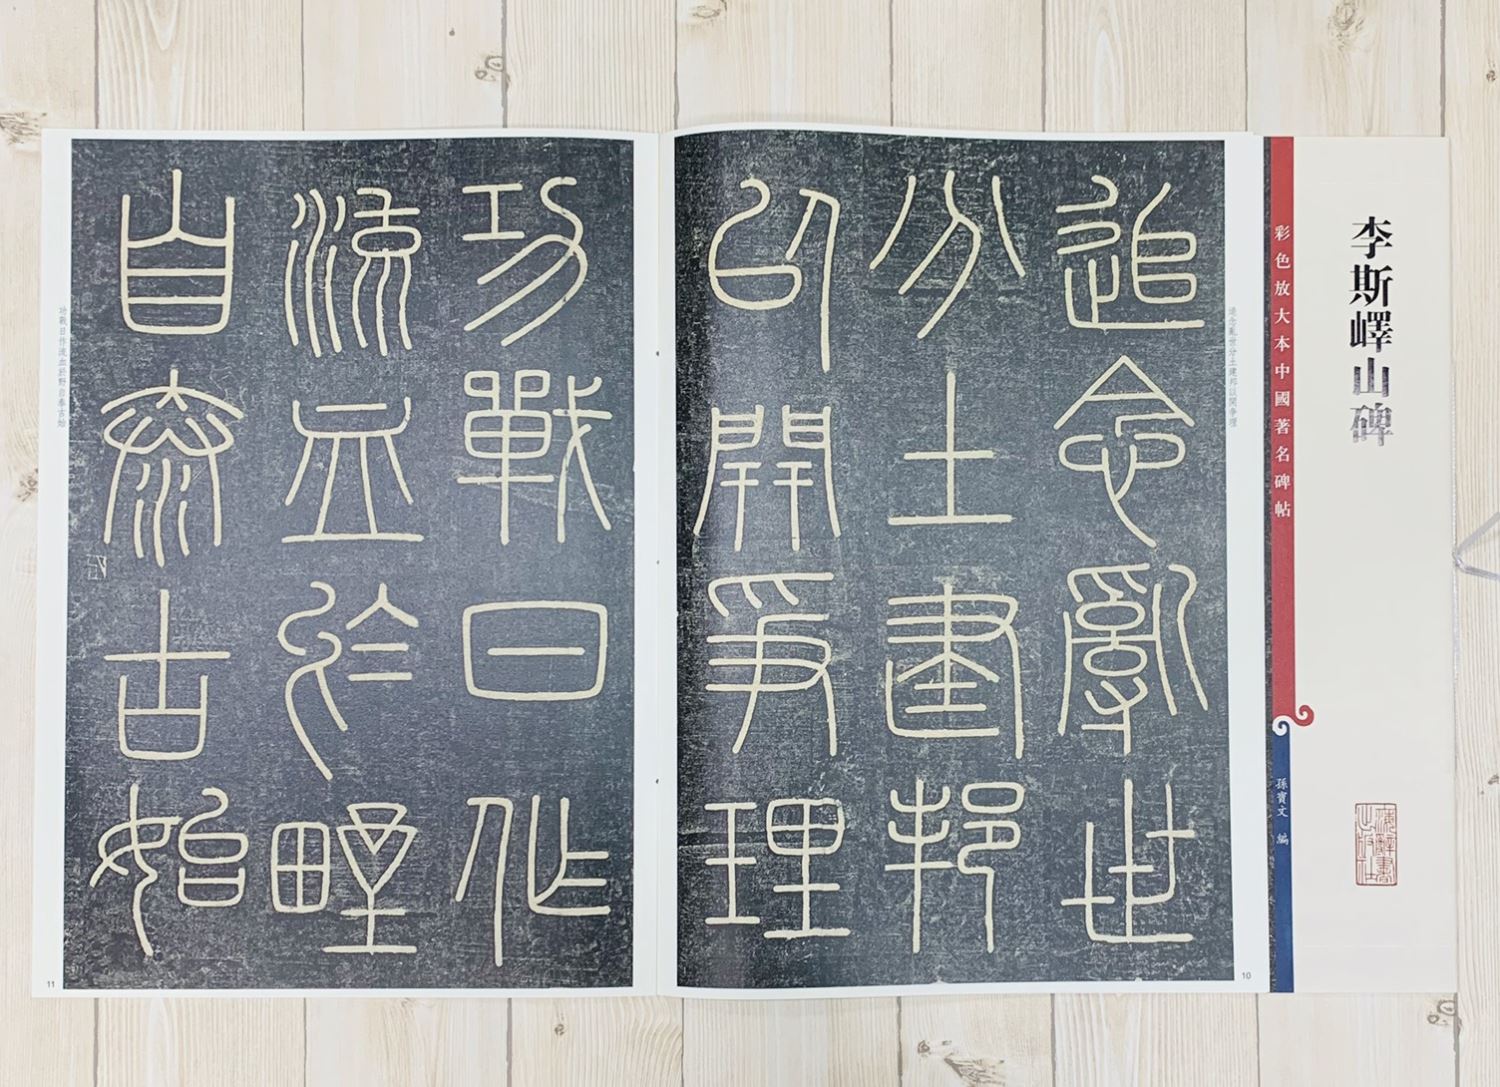 李斯嶧山碑
彩色放大本中國著名碑帖
孫寶文 編
上海辭書出版社
追念亂世分土建邦以開爭理
追念亂世
分土建邦
以開爭理
10
功戰日作
流血於野
自泰古始
功戰日作流血於野自泰古始
11